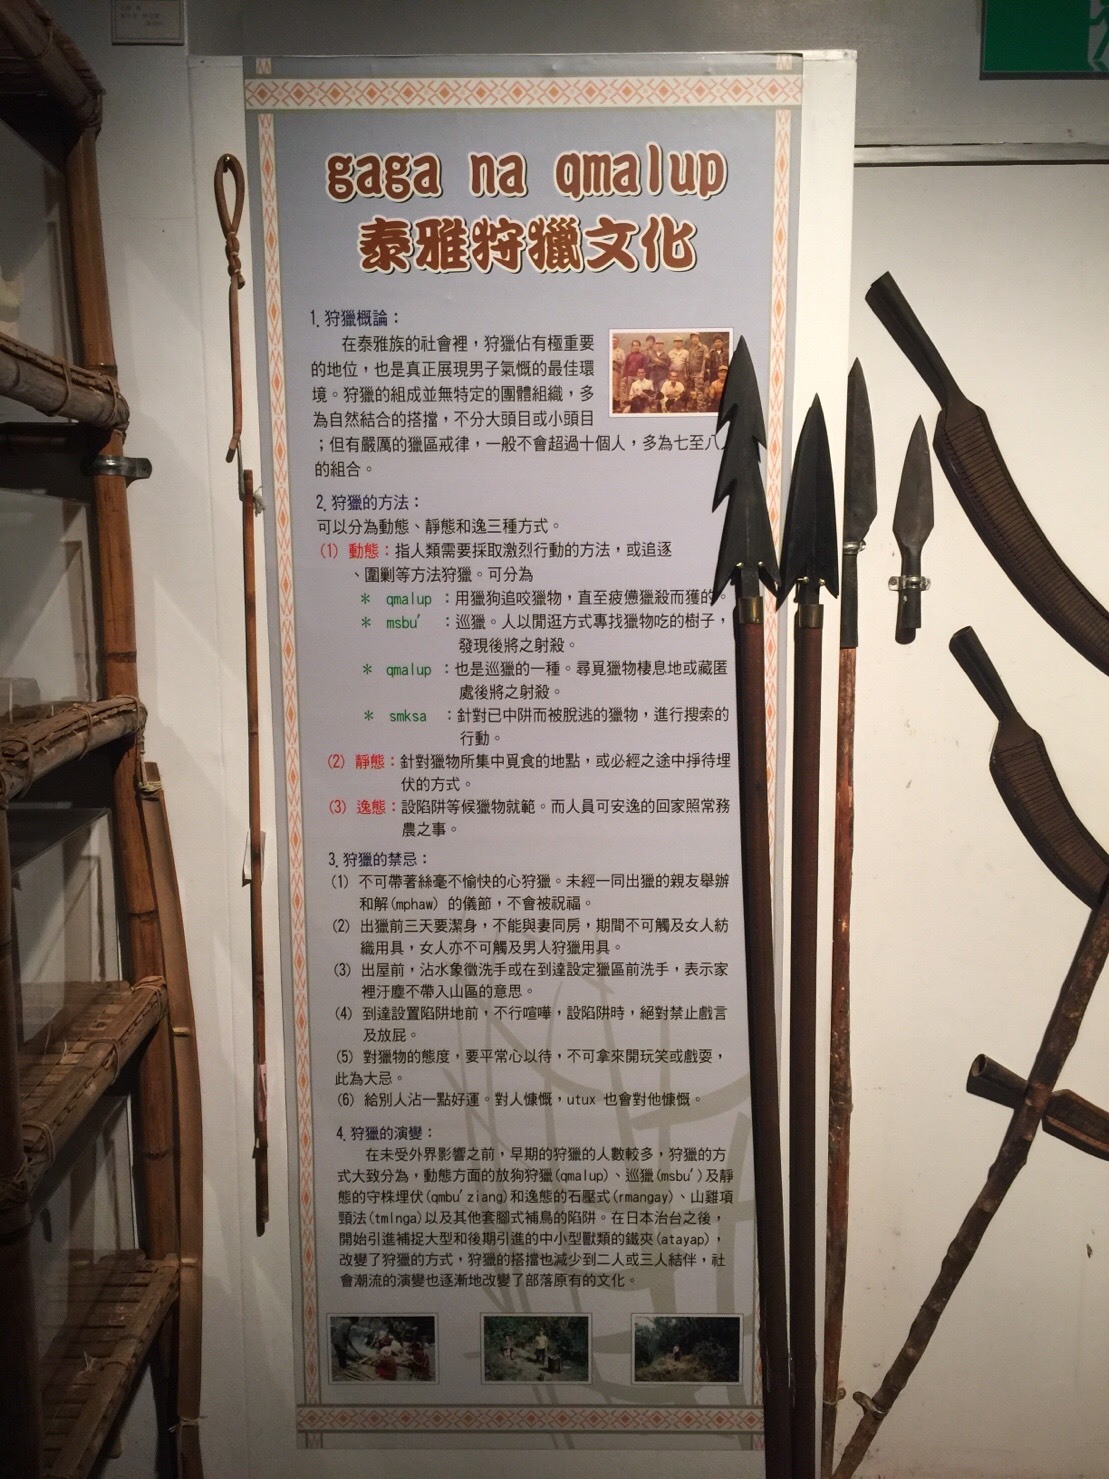 gaga na qmalup
泰雅狩獵文化
1. 狩獵概論：
在泰雅族的社會裡，狩獵佔有極重要
的地位，也是真正展現男子氣慨的最佳環
境。狩獵的組成並無特定的團體組織，多
為自然結合的搭擋，不分大頭目或小頭目
；但有嚴厲的獵區戒律，一般不會超過十個人，多為七至八人
的組合。
2. 狩獵的方法：
可以分為動態、靜態和逸三種方式。
(1) 動態：指人類需要採取激烈行動的方法，或追逐
、圍剿等方法狩獵。可分為
＊ qmalup ：用獵狗追咬獵物，直至疲憊獵殺而獲的。
＊ msbu' ：巡獵。人以閒逛方式專找獵物吃的樹子，
發現後將之射殺。
＊ qmalup ：也是巡獵的一種。尋覓獵物棲息地或藏匿
處後將之射殺。
＊ smksa ：針對已中阱而被脫逃的獵物，進行搜索的
行動。
(2) 靜態：針對獵物所集中覓食的地點，或必經之途中掙待埋
伏的方式。
(3) 逸態：設陷阱等候獵物就範。而人員可安逸的回家照常務
農之事。
3. 狩獵的禁忌：
(1) 不可帶著絲毫不愉快的心狩獵。未經一同出獵的親友舉辦
和解(mphaw) 的儀節，不會被祝福。
(2) 出獵前三天要潔身，不能與妻同房，期間不可觸及女人紡
織用具，女人亦不可觸及男人狩獵用具。
(3) 出屋前，沾水象徵洗手或在到達設定獵區前洗手，表示家
裡汙塵不帶入山區的意思。
(4) 到達設置陷阱地前，不行喧嘩，設陷阱時，絕對禁止戲言
及放屁。
(5) 對獵物的態度，要平常心以待，不可拿來開玩笑或戲耍，
此為大忌。
(6) 給別人沾一點好運。對人慷慨，utux 也會對他慷慨。
4. 狩獵的演變：
在未受外界影響之前，早期的狩獵的人數較多，狩獵的方
式大致分為，動態方面的放狗狩獵(qmalup)、巡獵(msbu')及靜
態的守株埋伏(qmbu'ziang)和逸態的石壓式(rmangay)、山雞項
頸法(tmlnga)以及其他套腳式補鳥的陷阱。在日本治台之後，
開始引進補捉大型和後期引進的中小型獸類的鐵夾(atayap)，
改變了狩獵的方式，狩獵的搭擋也減少到二人或三人結伴，社
會潮流的演變也逐漸地改變了部落原有的文化。